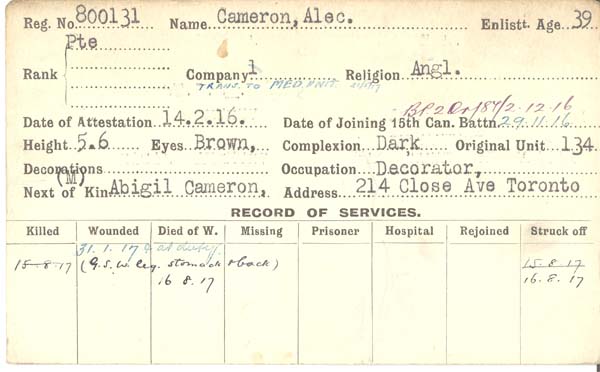 Reg. No. 800131 Name Cameron, Alec. Enlistt. Age 39
Pte
Rank Company 1 Religion Angl.
TRANS. TO MED. UNIT
BP2 /2.12.16
Date of Attestation 14.2.16. Date of Joining 15th Can. Battn. 29.11.16
Height 5.6 Eyes Brown, Complexion Dark Original Unit 134
Decorations Occupation Decorator,
(M)
Next of Kin Abigil Cameron, Address 214 Close Ave Toronto
RECORD OF SERVICES.
Killed Wounded Died of W. Missing Prisoner Hospital Rejoined Struck off
31.1.17 at duty.
15-8-17 (G.S.W. leg. stomach & back) 15.8.17
16 8.17 16.8.17